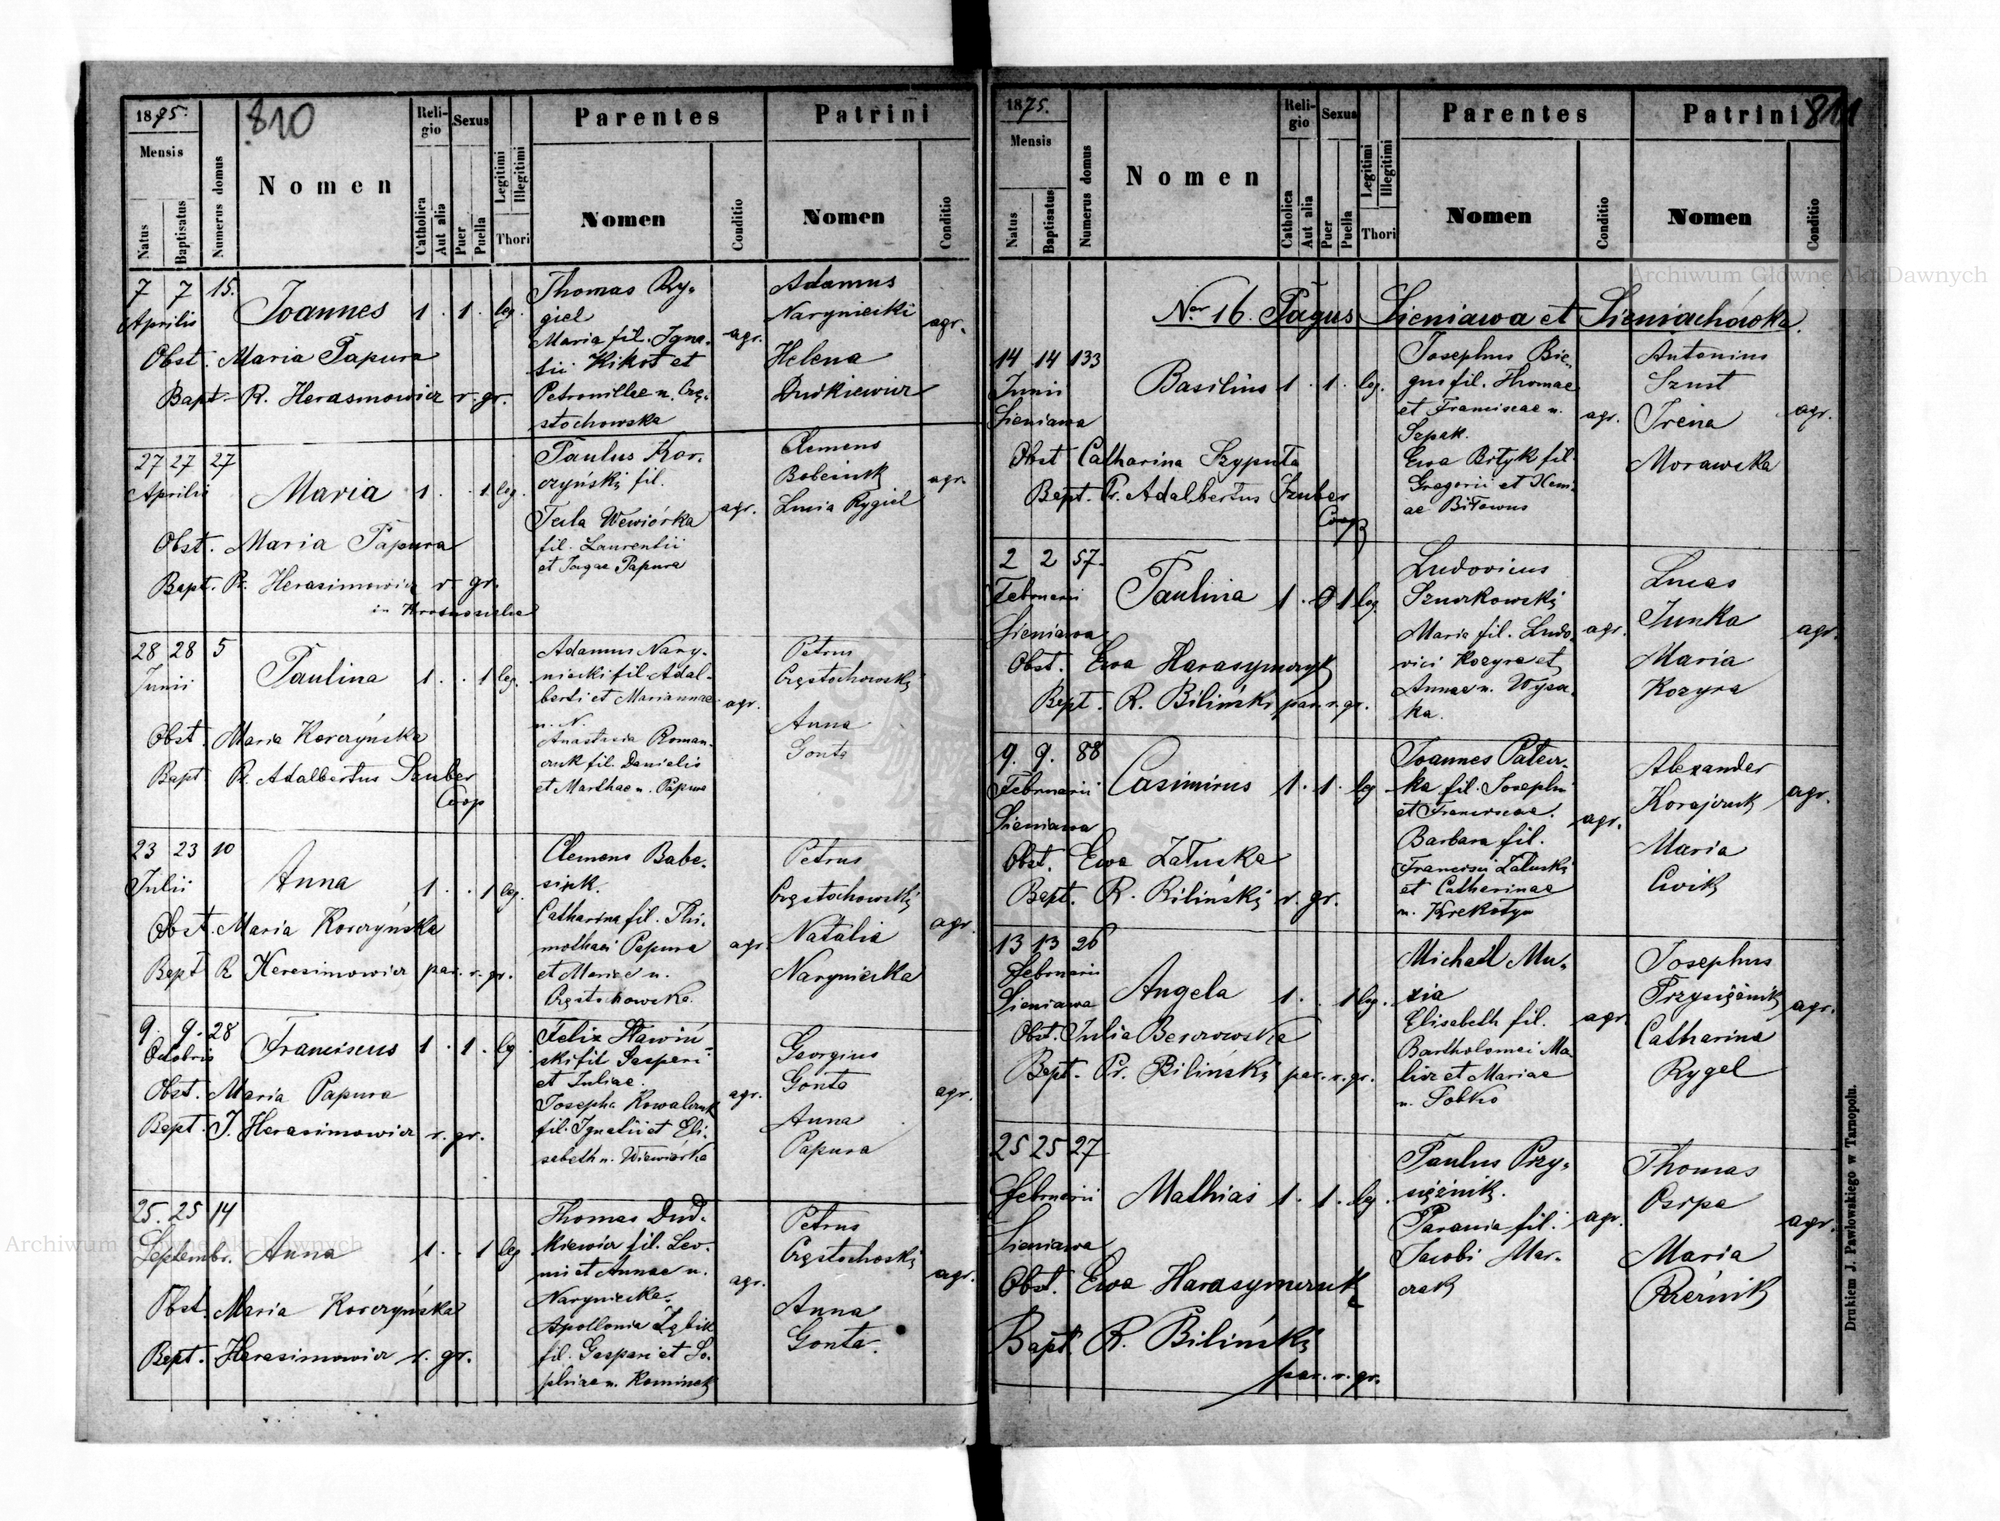 1875.
810
Mensis
Natus
Baptisatus
Numerus domus
Nomen
Religio
Catholica
Aut alia
Sexus
Puer
Puella
Legitimi
Illegitimi
Thori
Parentes
Nomen
Conditio
Patrini
Nomen
Conditio
7 7 15.
Aprilis
Joannes 1 . 1 . leg.
Obst. Maria Papura
Bapt. R. Herasmowicz r. gr.
Thomas Ry-
giel
Maria fil. Igna-
tii Kikot et
Petronillae n. Czę-
stochowska
agr.
Adamus
Naryniecki
Helena
Dudkiewicz
agr.
27 27 27
Aprilis
Maria 1 . . 1 leg.
Obst. Maria Papura
Bapt. R. Herasimowicz r. gr.
Paulus Kor-
czyński fil.
Tecla Wewiórka
fil. Laurentii
et Papura
agr.
Clemens
Lucia Rygiel
agr.
28 28 5
Junii
Paulina 1 . . 1 leg.
Obst. Maria Korczyńska
Bapt R. Adalbertus Szuber
Coop
Adamus Nary-
niecki fil. Adal-
berti et Mariannae
n. N.
Anastasia Roman-
czuk fil. Danielis
et Marthae n. Papura
agr.
Petrus
Częstochowski
Anna
Gonta
23 23 10
Julii
Anna 1 . . 1 leg.
Obst. Maria Korczyńska
Bapt R Herasimowicz par. r. gr.
Clemens Babe-
Catharina fil. Thi-
mothaei Papura
et Mariae n.
Częstochowska
agr.
Petrus
Częstochowski
Natalia
Naryniecka
agr.
9. 9. 28
Octobris
Franciscus 1 . 1 . leg
Obst. Maria Papura
Bapt. J. Herasimowicz r. gr.
Felix Sławiń-
ski fil Gaspari
et Juliae.
Josepha Kowalczuk
fil. Ignatii et Eli-
sabeth n. Wiewiórka
agr.
Georgius
Gonta
Anna
Papura
agr.
25. 25 14
Septembr.
Anna 1 . . 1 leg
Obst Maria Korczyńska
Bapt. Herasimowicz r. gr.
Thomas Dud-
kiewicz fil. Leo-
nis et Annae n.
Naryniecka.
Apollonia Ząbik
fil. Gaspari et So-
phiae n. Kominek
agr.
Petrus
Częstochoski
Anna
Gonta.
agr.
1875.
811
Mensis
Natus
Baptisatus
Numerus domus
Nomen
Religio
Catholica
Aut alia
Sexus
Puer
Puella
Legitimi
Illegitimi
Thori
Parentes
Nomen
Conditio
Patrini
Nomen
Conditio
Nro 16. Pagus Sieniawa et Sieniachówka.
14 14 133
Junii
Sieniawa
Basilius 1 . 1 . leg.
Obst Catharina Szyputa
Bapt. Pr. Adalbertus Szuber
Coop
Josephus Bie-
gus fil. Thomae
et Franciscae n.
Szpak.
Ewa Brtyk fil.
Gregorii et Xeni-
ae Biłowus
agr.
Antonius
Szust
Irena
Morawska
agr.
2 2 57.
Februarii
Sieniawa
Paulina 1 . 1 leg
Obst. Ewa Harasymczyk
Bapt. R. Biliński par. r. gr.
Ludovicus
Sznerkowski
Maria fil. Ludo-
vici Kozyra et
Annae n. Wyso-
ka.
agr.
Lucas
Junka
Maria
Kozyra
agr.
9. 9. 88
Februarii
Sieniawa
Casimirus 1 . 1 . leg
Obst. Ewa Załuska
Bapt. R. Biliński r. gr.
Joannes Pater-
ka fil. Josephi
et Franciscae.
Barbara fil.
Francisci Załuski
et Catharinae
n. Krekotyn
agr.
Alexander
Korajczuk
Maria
Cwik
agr.
13 13 26
Februarii
Sieniawa
Angela 1 . . 1 leg.
Obst. Julia Berezowska
Bapt. Pr. Biliński par. r. gr.
Michael Mu-
zia
Elisabeth fil.
Bartholomei Ma-
licz et Mariae
n. Sobko
agr.
Josephus
Przysiężnik
Catharina
Rygel
agr.
25 25 27
Februarii
Sieniawa
Mathias 1 . 1 . leg.
Obst. Ewa Harasymczuk
Bapt. R. Biliński
par. r. gr.
Paulus Przy-
siężnik.
Parania fil.
Jacobi Mar-
czak
agr.
Thomas
Osipa
Maria
Rzeźnik
agr.
Drukiem J. Pawłowskiego w Tarnopolu.
Archiwum Główne Akt Dawnych
Archiwum Główne Akt Dawnych